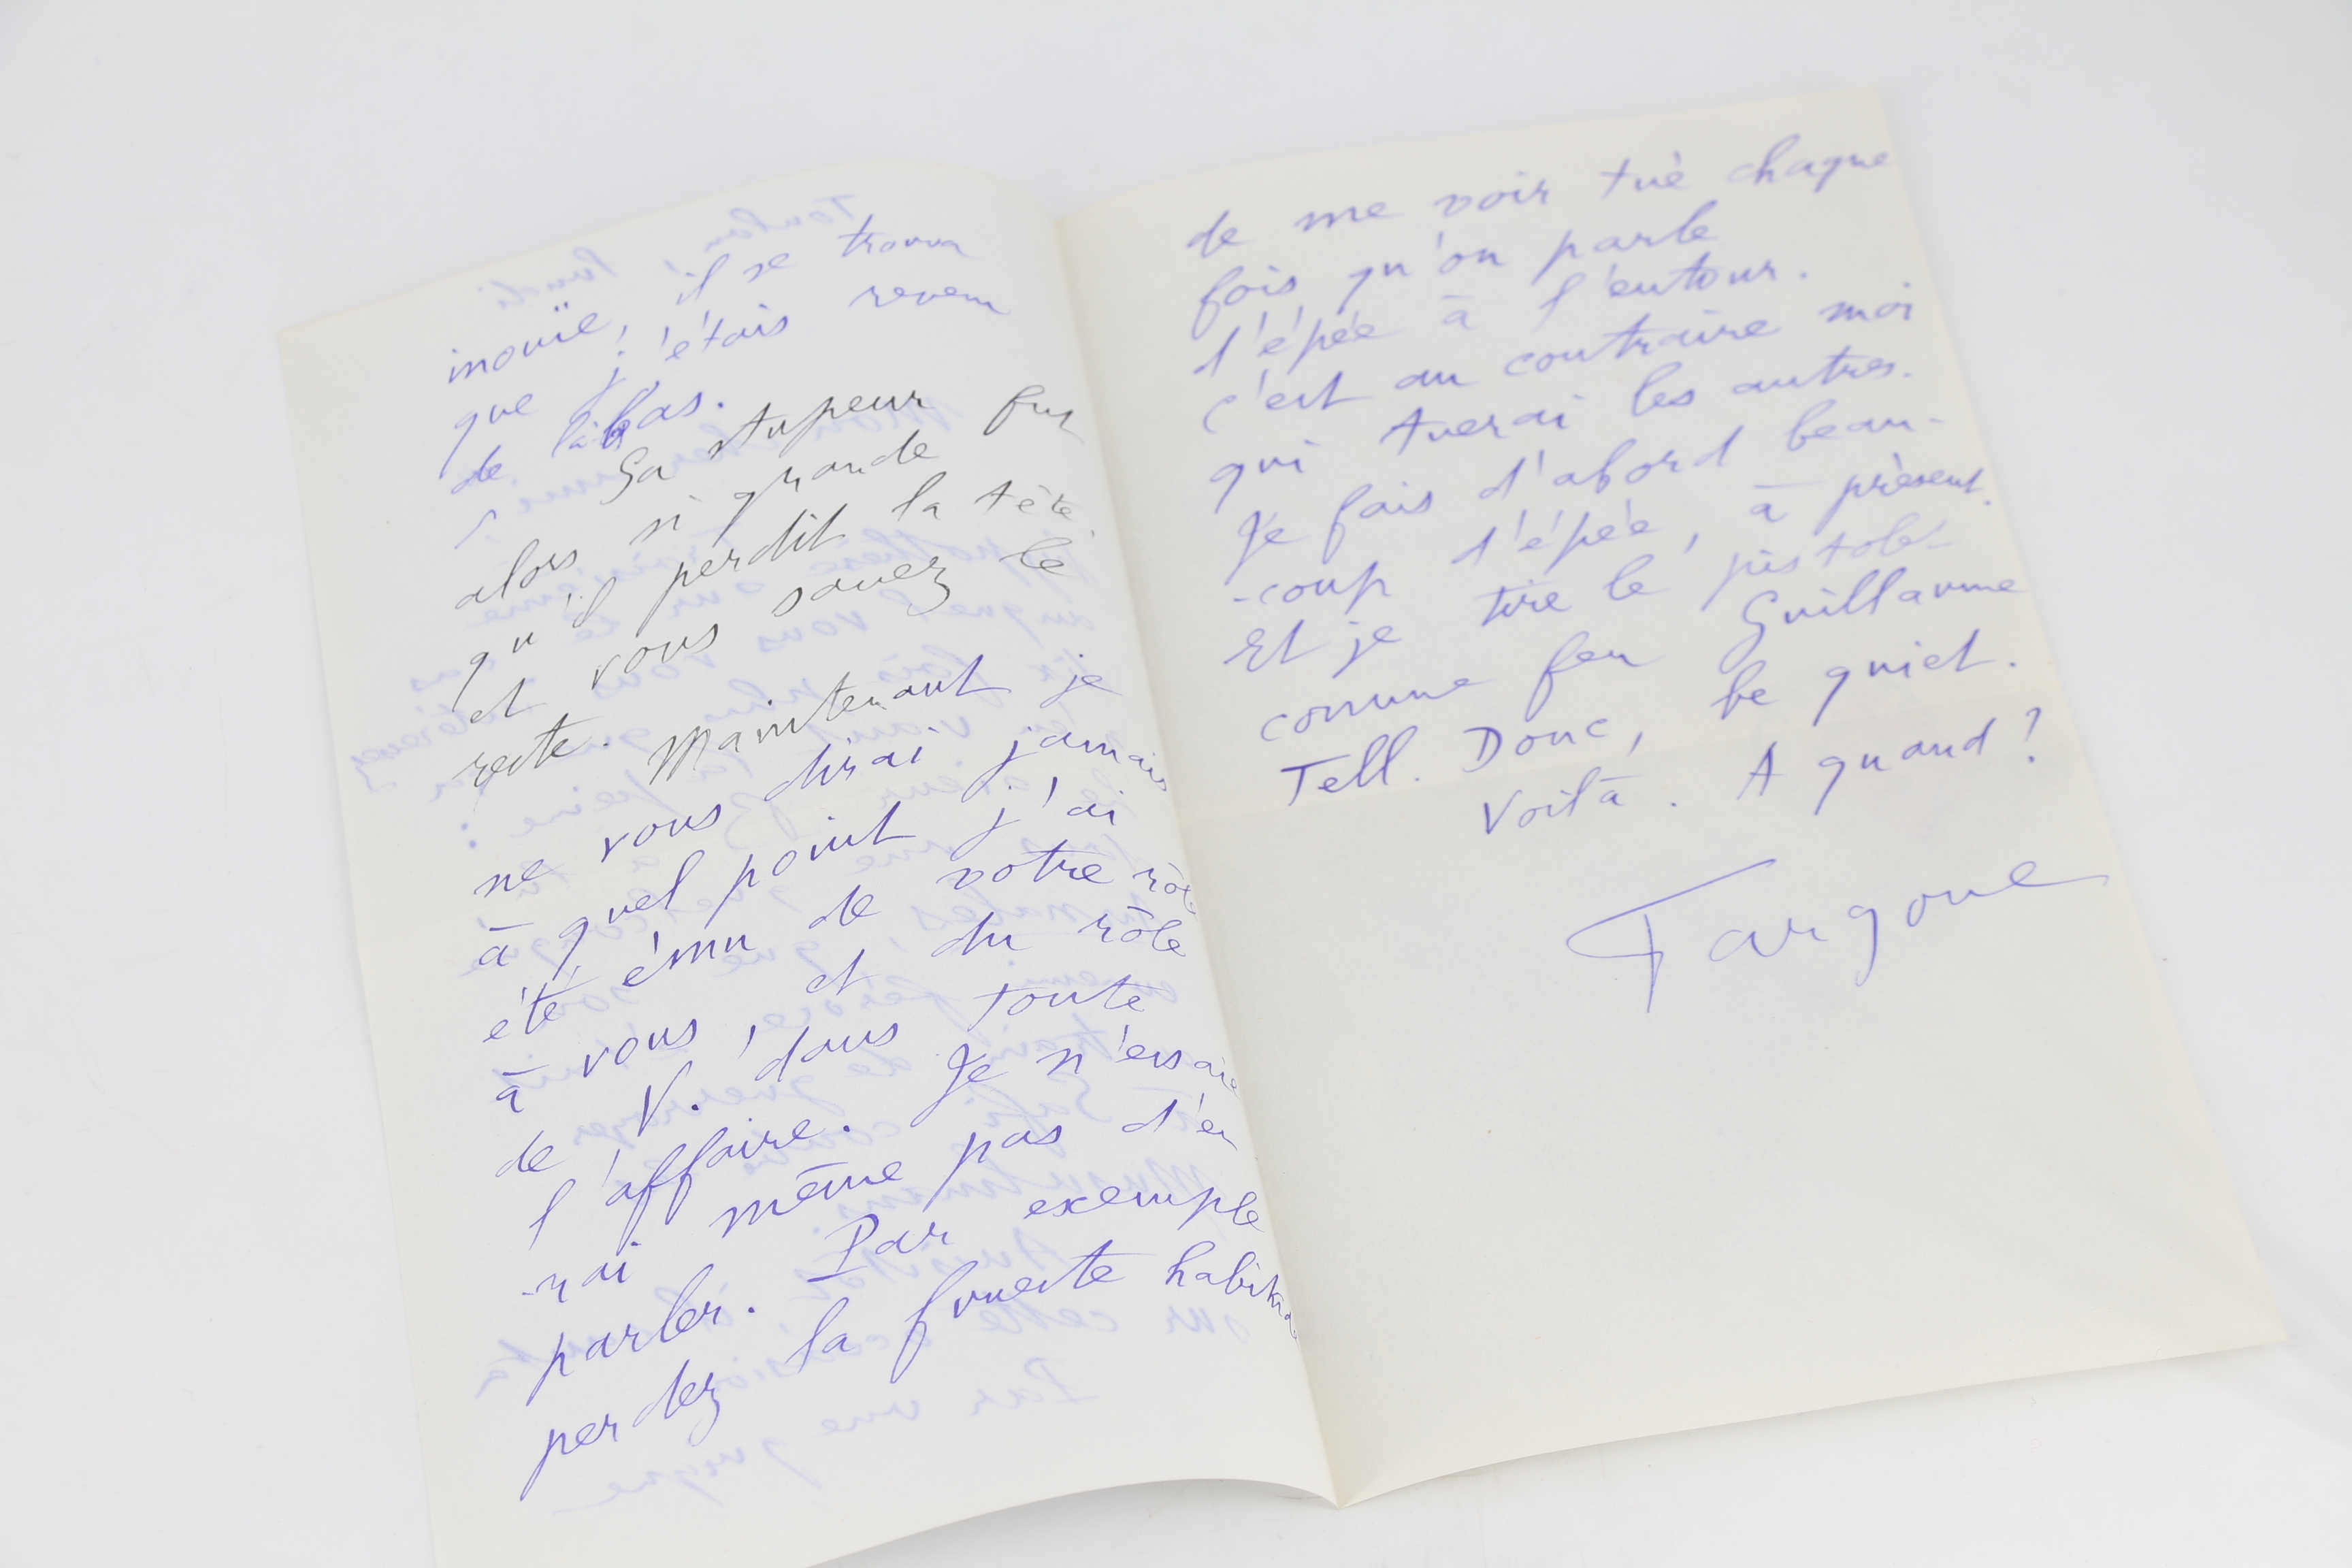 inouïe, il se trouva
que j'étais revenu
de là-bas.
Sa stupeur fut
alors si grande
qu'il perdit la tête.
et vous savez le
reste. Maintenant je
ne vous dirai jamais
à quel point j'ai
été ému de votre rôle
à vous, et du rôle
de V. dans toute
l'affaire. Je n'essaie
-rai même pas d'en
parler. Par exemple
perdez la funeste habitude
de me voir tué chaque
fois qu'on parle
d'épée à l'entour.
c'est au contraire moi
qui tuerai les autres.
Je fais d'abord beau-
-coup d'épée, à présent.
Et je tire le pistolet
comme feu Guillaume
Tell. Donc, be quiet.
Voilà. A quand ?
Fargone